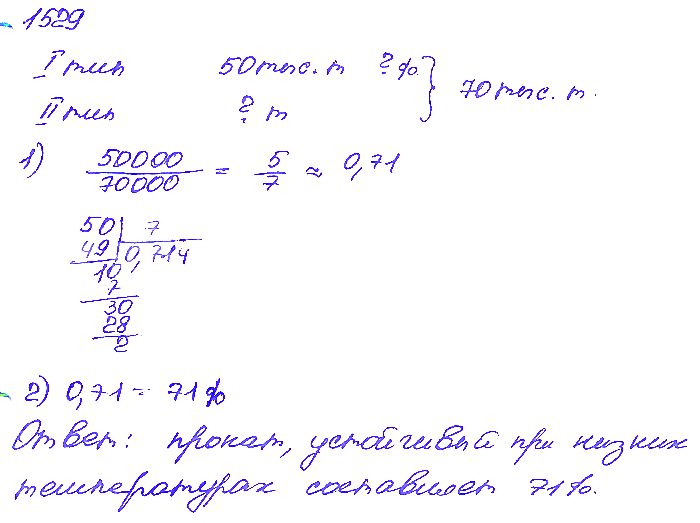 1529
I тип 50 тыс. т ? %
II тип ? т } 70 тыс. т.
1) 50000/70000 = 5/7 ≈ 0,71
50 | 7
49 | 0,714
10
7
30
28
2
2) 0,71 = 71%
Ответ: прокат, устойчивый при низких
температурах составляет 71%.